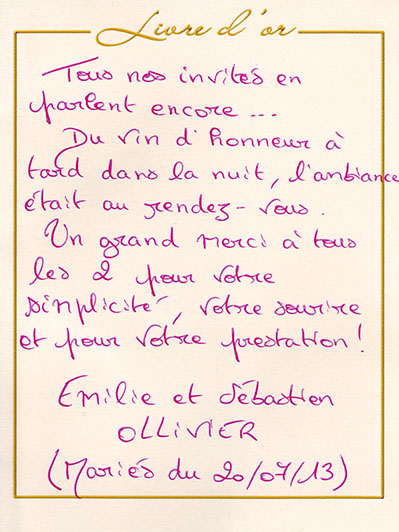 Livre d'or
Tous nos invités en
parlent encore ...
Du vin d'honneur à
tard dans la nuit, l'ambiance
était au rendez-vous.
Un grand merci à tous
les 2 pour votre
simplicité, votre sourire
et pour votre prestation !
Emilie et Sébastien
OLLIVIER
(Mariés du 20/07/13)